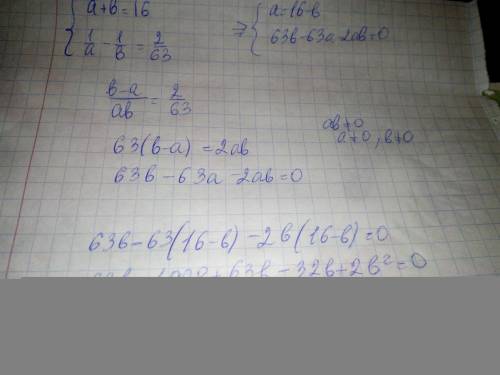 { a+b=16 => { a=16-b
1/a - 1/b = 2/63 63b-63a-2ab=0
b-a/ab = 2/63
ab≠0
a≠0, b≠0
63(b-a)=2ab
63b-63a-2ab=0
63b-63(16-b)-2b(16-b)=0
+63b-32b+2b²=0